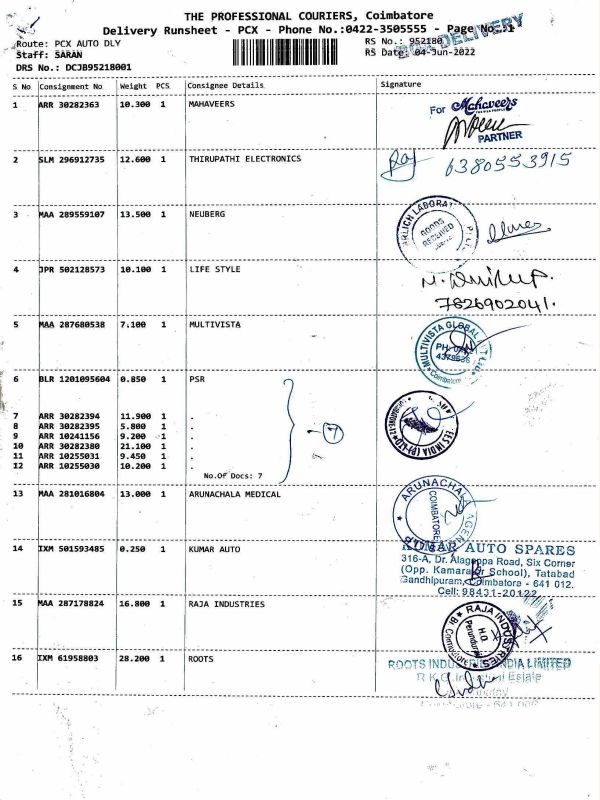 THE PROFESSIONAL COURIERS, Coimbatore
Delivery Runsheet - PCX - Phone No.:0422-3505555 - Page No.:1
DELIVERY
Route: PCX AUTO DLY
RS No.: 952180
Staff: SARAN
RS Date: 04-Jun-2022
DRS No.: DCJB95218001
S No Consignment No Weight PCS Consignee Details Signature
1 ARR 30282363 10.300 1 MAHAVEERS
For Mahaveers
PARTNER
2 SLM 296912735 12.600 1 THIRUPATHI ELECTRONICS
Raj 6380553915
3 MAA 289559107 13.500 1 NEUBERG
GOODS
RECEIVED
4 JPR 502128573 10.100 1 LIFE STYLE
7826902041.
5 MAA 287680538 7.100 1 MULTIVISTA
MULTIVISTA GLOBAL
Coimbatore
6 BLR 1201095604 0.850 1 PSR
7 ARR 30282394 11.900 1 .
8 ARR 30282395 5.800 1 .
9 ARR 10241156 9.200 1 .
10 ARR 30282380 21.100 1 .
11 ARR 10255031 9.450 1 .
12 ARR 10255030 10.200 1 .
7
No.Of Docs: 7
13 MAA 281016804 13.000 1 ARUNACHALA MEDICAL
ARUNACHALA AGENCIES
COIMBATORE
14 IXM 501593485 0.250 1 KUMAR AUTO
KUMAR AUTO SPARES
316-A, Dr. Alagappa Road, Six Corner
(Opp. Kamarajar School), Tatabad
Gandhipuram, Coimbatore - 641 012.
Cell: 98431-20122
15 MAA 287178824 16.800 1 RAJA INDUSTRIES
RAJA INDUSTRIES
H.O.
Perundurai
16 IXM 61958803 28.200 1 ROOTS
ROOTS INDUSTRIES INDIA LIMITED
R K G Industrial Estate
Coimbatore - 641 006